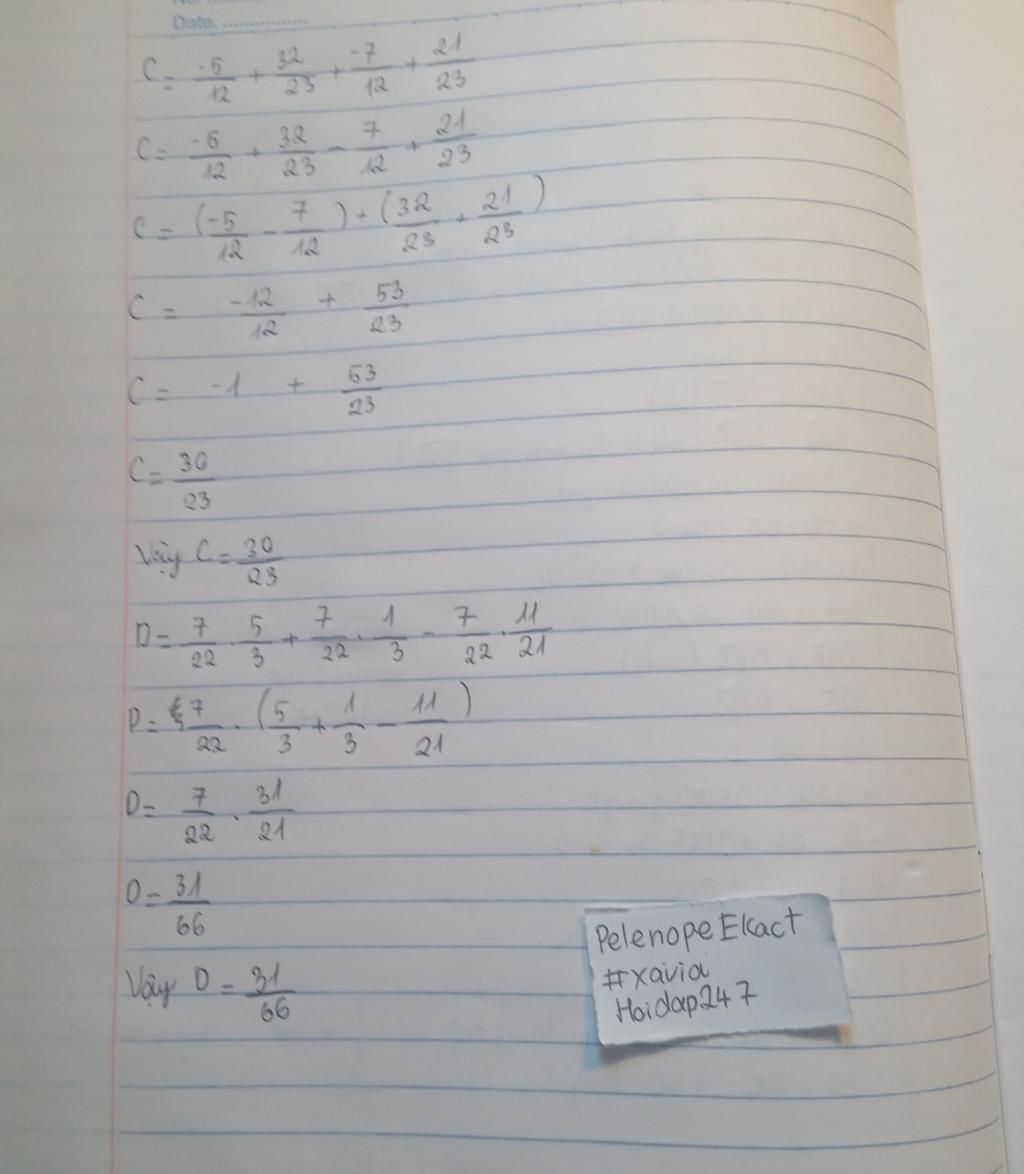 Date. ................
C = -5/12 + 32/23 + -7/12 + 21/23
C = -5/12 + 32/23 - 7/12 + 21/23
C = (-5/12 - 7/12) + (32/23 + 21/23)
C = -12/12 + 53/23
C = -1 + 53/23
C = 30/23
Vậy C = 30/23
D = 7/22 . 5/3 + 7/22 . 1/3 - 7/22 . 11/21
D = 7/22 . (5/3 + 1/3 - 11/21)
D = 7/22 . 31/21
D = 31/66
Vậy D = 31/66
Pelenope Ekact
#xavia
Hoidap247